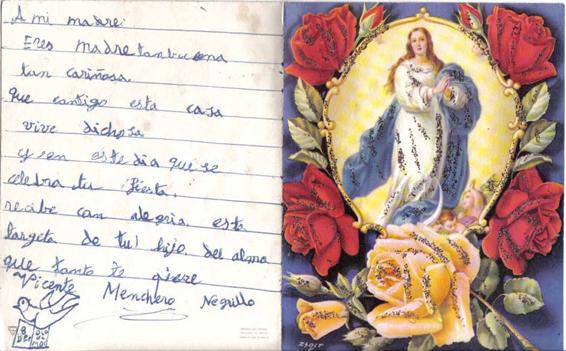 A mi madre:
Eres madre tan buena
tan cariñosa
que contigo esta casa
vive dichosa
y en este dia que se
celebra tu fiesta,
recibe con alegria esta
targeta de tu hijo del alma
que tanto te qiere
Vicente
Menchero Negrillo
8
DE
DICI